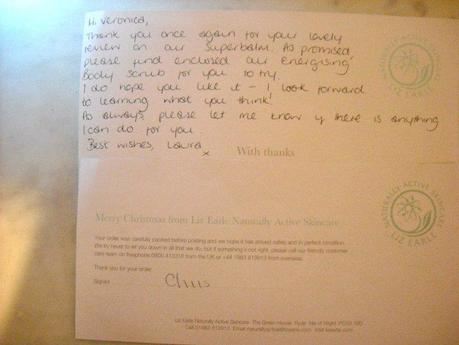 Hi Veronica,
Thank you once again for your lovely
review on our Superbalm. As promised
please find enclosed our Energising
Body Scrub for you to try.
I do hope you like it - I look forward
to learning what you think!
As always please let me know if there is anything
I can do for you.
Best wishes, Laura x
With thanks
NATURALLY ACTIVE SKINCARE
LIZ EARLE
Merry Christmas from Liz Earle Naturally Active Skincare
Your order was carefully packed before posting and we hope it has arrived safely and in perfect condition.
We try never to let you down in all that we do, but if something is not right, please call our friendly customer
care team on freephone from the UK or from overseas.
Thank you for your order.
Signed
Chris
NATURALLY ACTIVE SKINCARE
LIZ EARLE
Liz Earle Naturally Active Skincare The Green House Ryde Isle of Wight